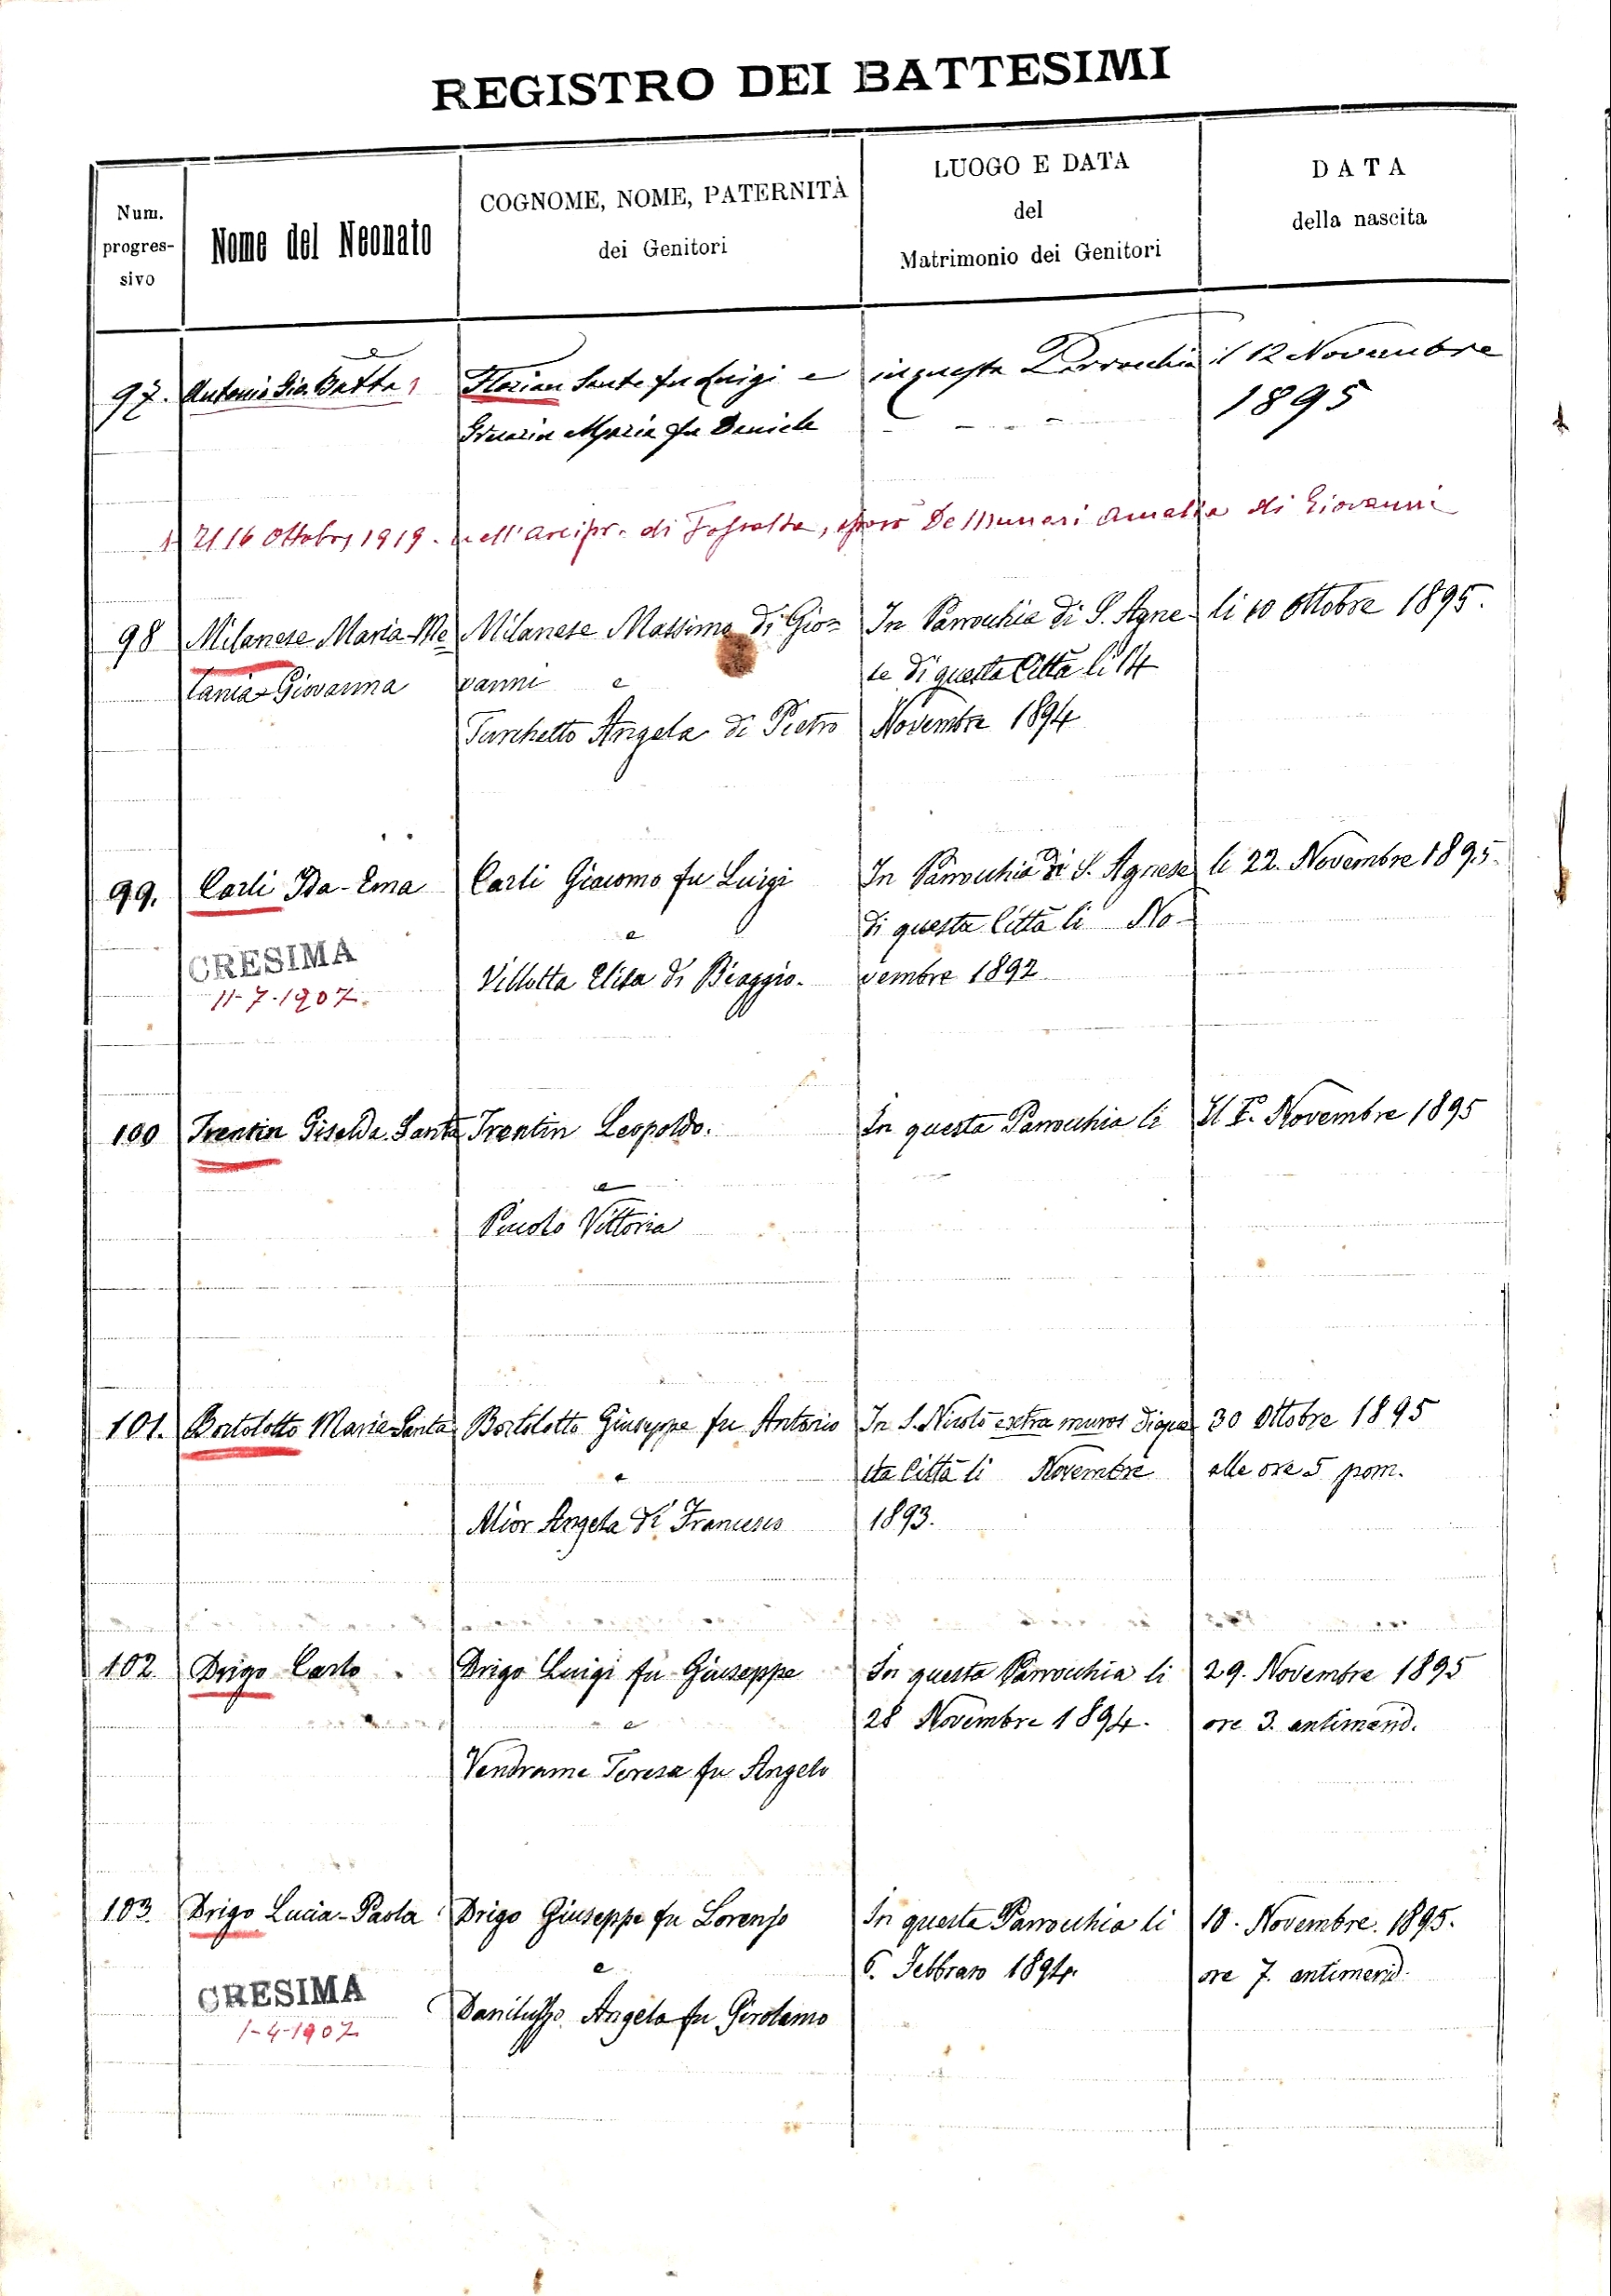 REGISTRO DEI BATTESIMI
Num.
progres-
sivo
Nome del Neonato
COGNOME, NOME, PATERNITÀ
dei Genitori
LUOGO E DATA
del
Matrimonio dei Genitori
DATA
della nascita
97. Antonio Gio. Batta 1 Florian Sante fu Luigi e in questa Parrocchia il 12 Novembre
Maria fu Daniele 1895
1 Il 16 Ottobre 1919. nell'arcipr. di Fossalta, sposò De Munari Amalia di Giovanni
98 Milanese Maria-Me Milanese Massimo di Gio= In Parrochia di S. Agne- li 10 Ottobre 1895.
lania-Giovanna vanni e se di questa Città li 14
Turchetto Angela di Pietro Novembre 1894
99. Carli Ida-Ema Carli Giacomo fu Luigi In Parrochia di S. Agnese li 22. Novembre 1895.
e di questa Città li No-
CRESIMA
11-7-1907. Villotta Elisa di Biaggio. vembre 1892
100 Trentin Giselda. Santa Trentin Leopoldo. In questa Parrochia li Novembre 1895
e
Vittoria
101. Bortolotto Maria-Santa Bortolotto Giuseppe fu Antonio In S. Nicolò extra muros di que 30 Ottobre 1895
e sta Città li Novembre alle ore 5 pom.
Mior Angela di Francesco 1893.
102. Drigo Carlo Drigo Luigi fu Giuseppe In questa Parrochia li 29. Novembre 1895
e 28 Novembre 1894. ore 3. antimerid.
Vendrame Teresa fu Angelo
103. Drigo Lucia-Paola Drigo Giuseppe fu Lorenzo In questa Parrochia li 10. Novembre. 1895.
e 6. Febbraro 1894. ore 7. antimerid.
CRESIMA
1-4-1907 Danilusso Angela fu Girolamo